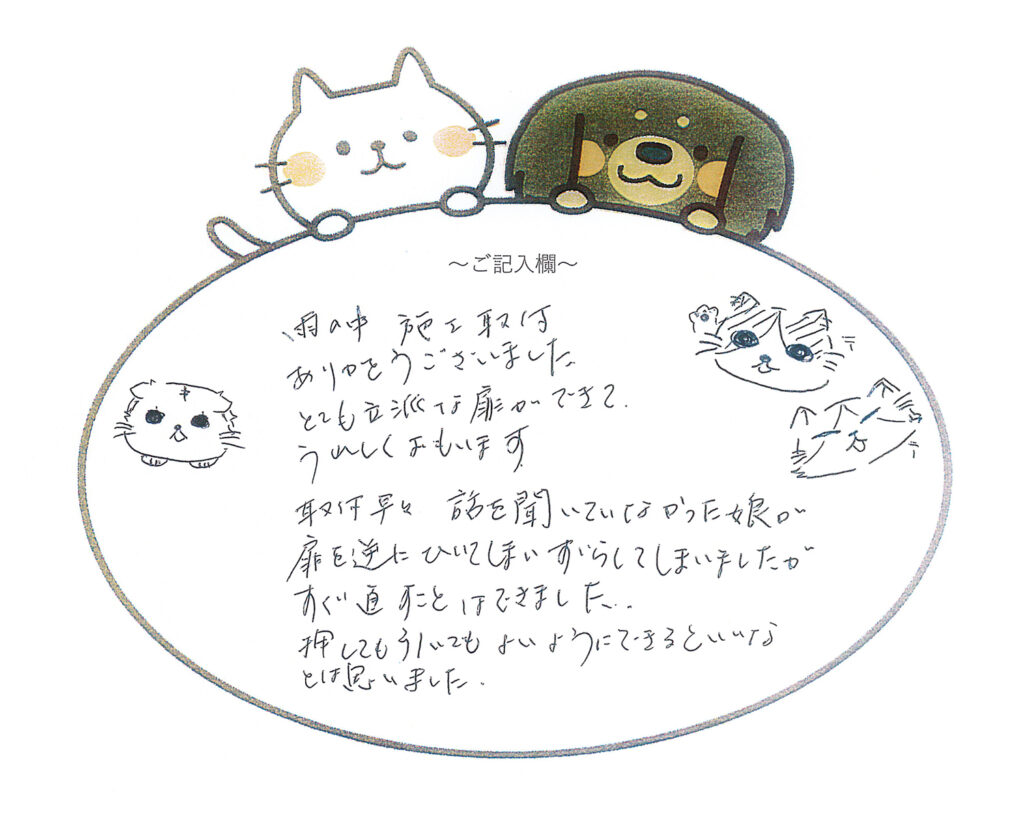 ～ご記入欄～
雨の中 施工取付
ありがとうございました
とても立派な扉ができて、
うれしくおもいます
取付早々 話を聞いていなかった娘が
扉を逆にひいてしまいずらしてしまいましたが
すぐ直すことはできました。
押してもひいてもよいようにできるといいな
とは思いました。